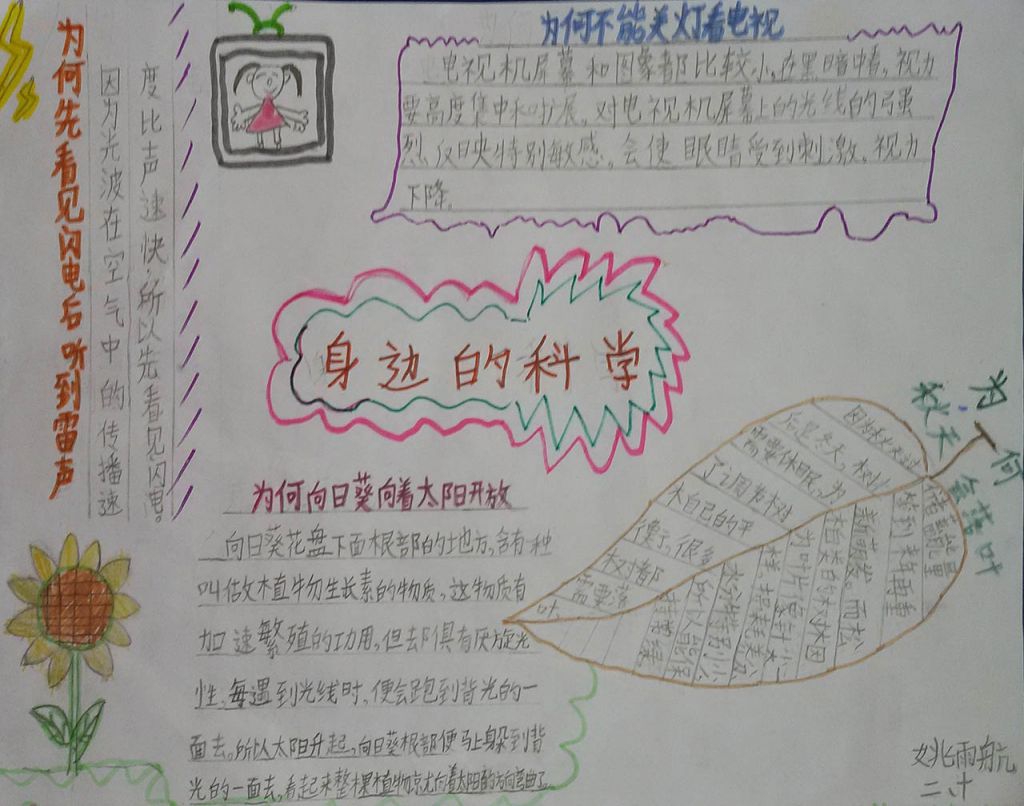 为何先看见闪电后听到雷声
因为光波在空气中的传播速
度比声速快,所以先看见闪电。
为何不能关灯看电视
电视机屏幕和图象都比较小,在黑暗中看,视力
要高度集中和扩展,对电视机屏幕上的光线的强
烈反映特别敏感,会使眼睛受到刺激,视力
下降。
身边的科学
为何向日葵向着太阳开放
向日葵花盘下面根部的地方,含有一种
叫做植物生长素的物质,这物质有
加速繁殖的功用,但却俱有厌旋光
性,每遇到光线时,便会跑到背光的一
面去。所以太阳升起,向日葵根部便马上躲到背
光的一面去,看起来整棵植物就尤向着太阳的方向弯曲了
为何
秋天
会落叶
因为秋天过
后是冬天,树木
需要休眠,为
了调节树
木自己的平
衡,很多
权树都
需要落
叶
储能量
等到来年再重
新萌发。而松
柏类的树林因
为叶片要针小一
样,损耗养
水分特别小
所以能保
持常绿
姚雨航
二、十